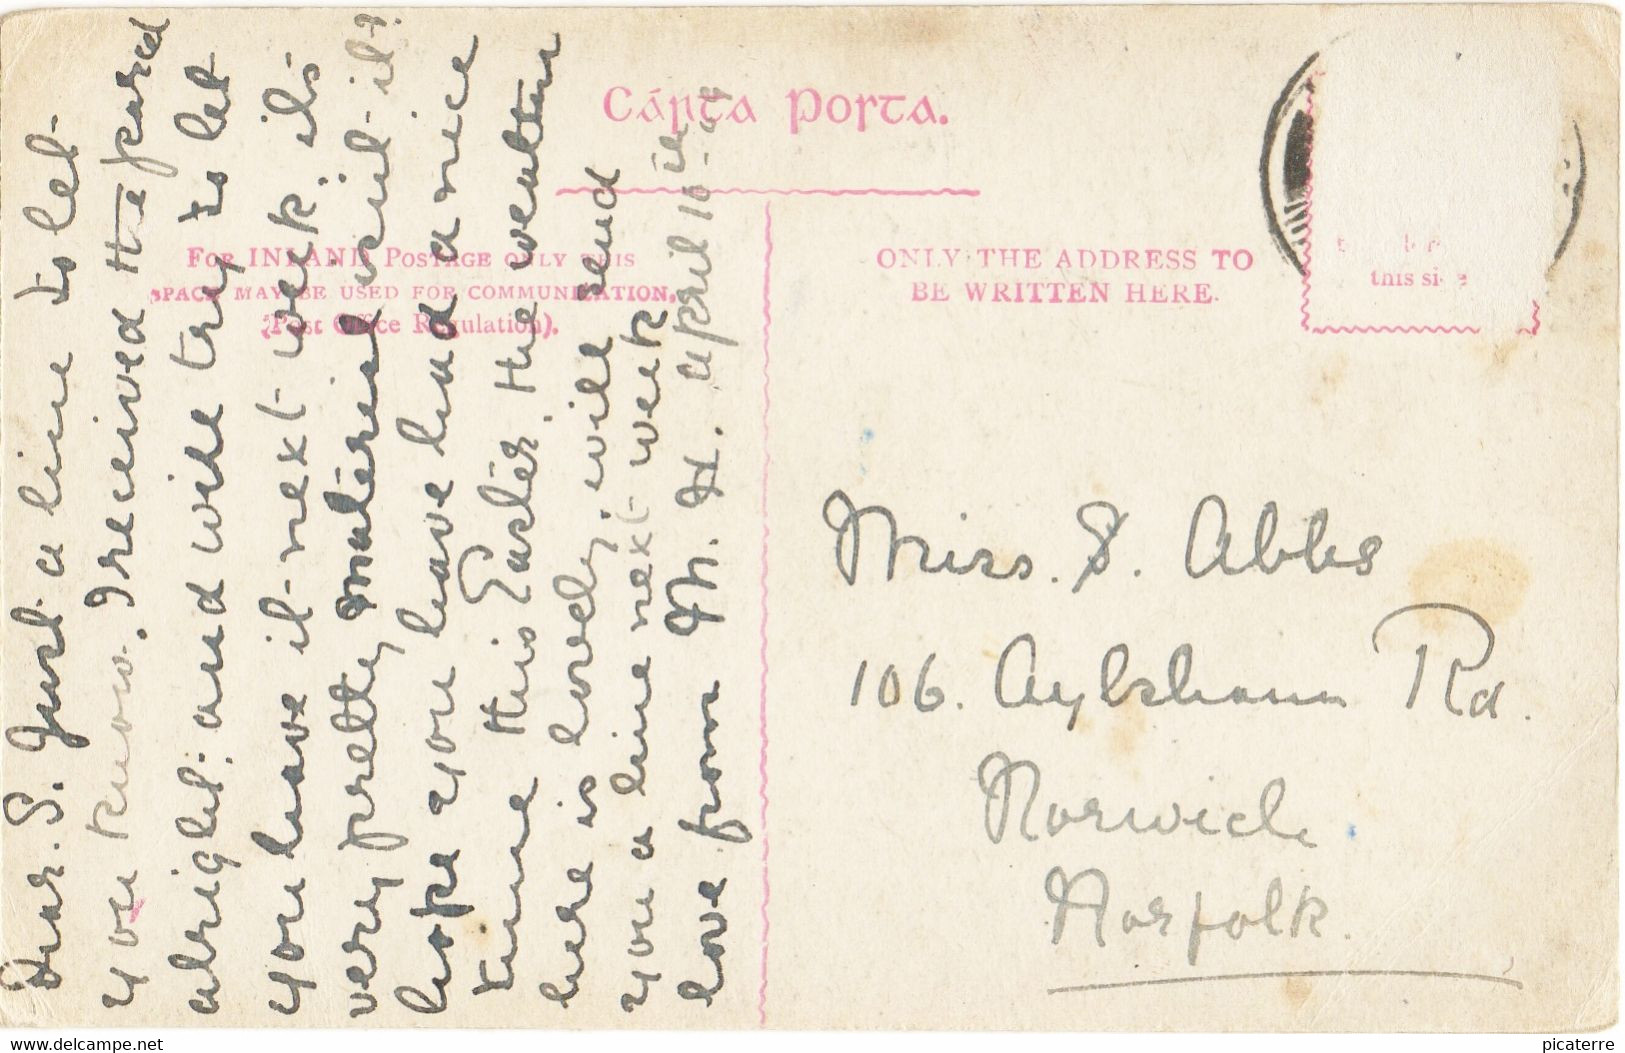 Cárta Porta.
For INLAND Postage only this
space may be used for communication.
(Post Office Regulation).
ONLY THE ADDRESS TO
BE WRITTEN HERE.
this side
Dear. S. Just a line to let
you know. I received the parcel
alright: and will try to let
you have it next week, its
very pretty material isn't it?
hope you have had a nice
time this Easter, the weather
here is lovely, will send
you a line next week
love from M. H. April 10th
Miss. S. Abbs
106. Aylsham Rd.
Norwich
Norfolk.
www.delcampe.net
picaterre